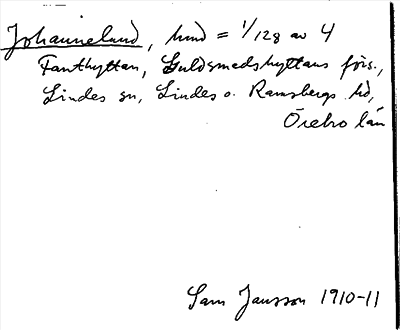 Johanneland, hmd = 1/128 av 4
Fanthyttan, Guldsmedshyttans förs.,
Lindes sn, Lindes o. Ramsbergs hd,
Örebro län
Sam Jansson 1910-11